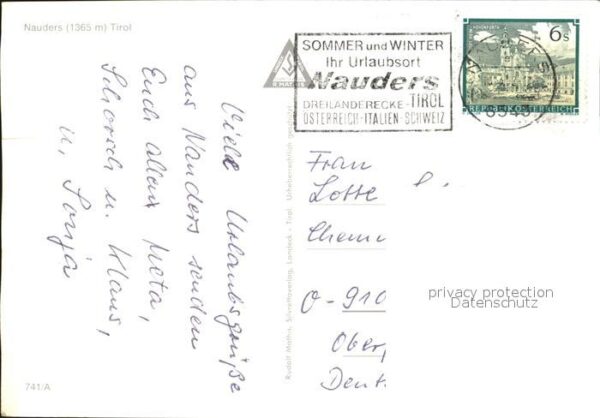 Nauders (1365 m) Tirol
Viele Urlaubsgrüße
aus Nauders senden
Euch allen Meta,
Schorsch u. Klaus,
u. Sonja
741/A
Rudolf Mathis, Silvrettaverlag, Landeck - Tirol. Urheberrechtlich geschützt
SOMMER und WINTER
Ihr Urlaubsort
Nauders
DREILÄNDERECKE - TIROL
ÖSTERREICH - ITALIEN - SCHWEIZ
6s
REPUBLIK ÖSTERREICH
Frau
Lotte
O-910
Ober,
Deut.
privacy protection
Datenschutz